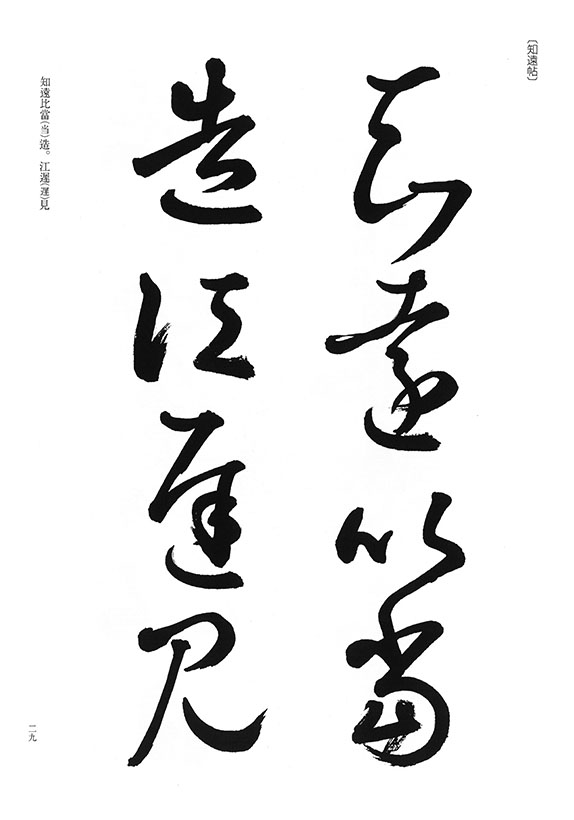 〔知遠帖〕
知遠比當
造江遲見
知遠比當(当)造。江遲(遅)見
二九